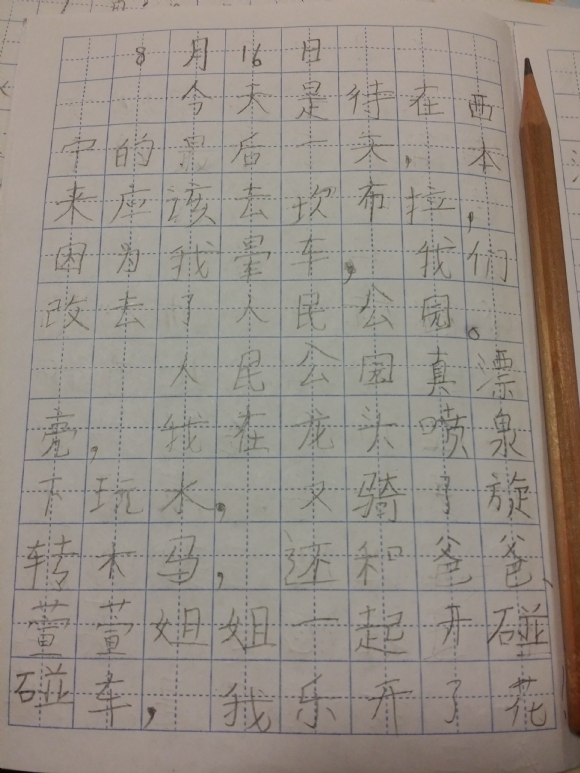 8月16日
今天是待在西
宁的最后一天，本
来应该去坎布拉，
因为我晕车，我们
改去了人民公园。
人民公园真漂
亮，我在龙头喷泉
下玩水，又骑了旋
转木马，还和爸爸、
萱萱姐姐一起开碰
碰车，我乐开了花